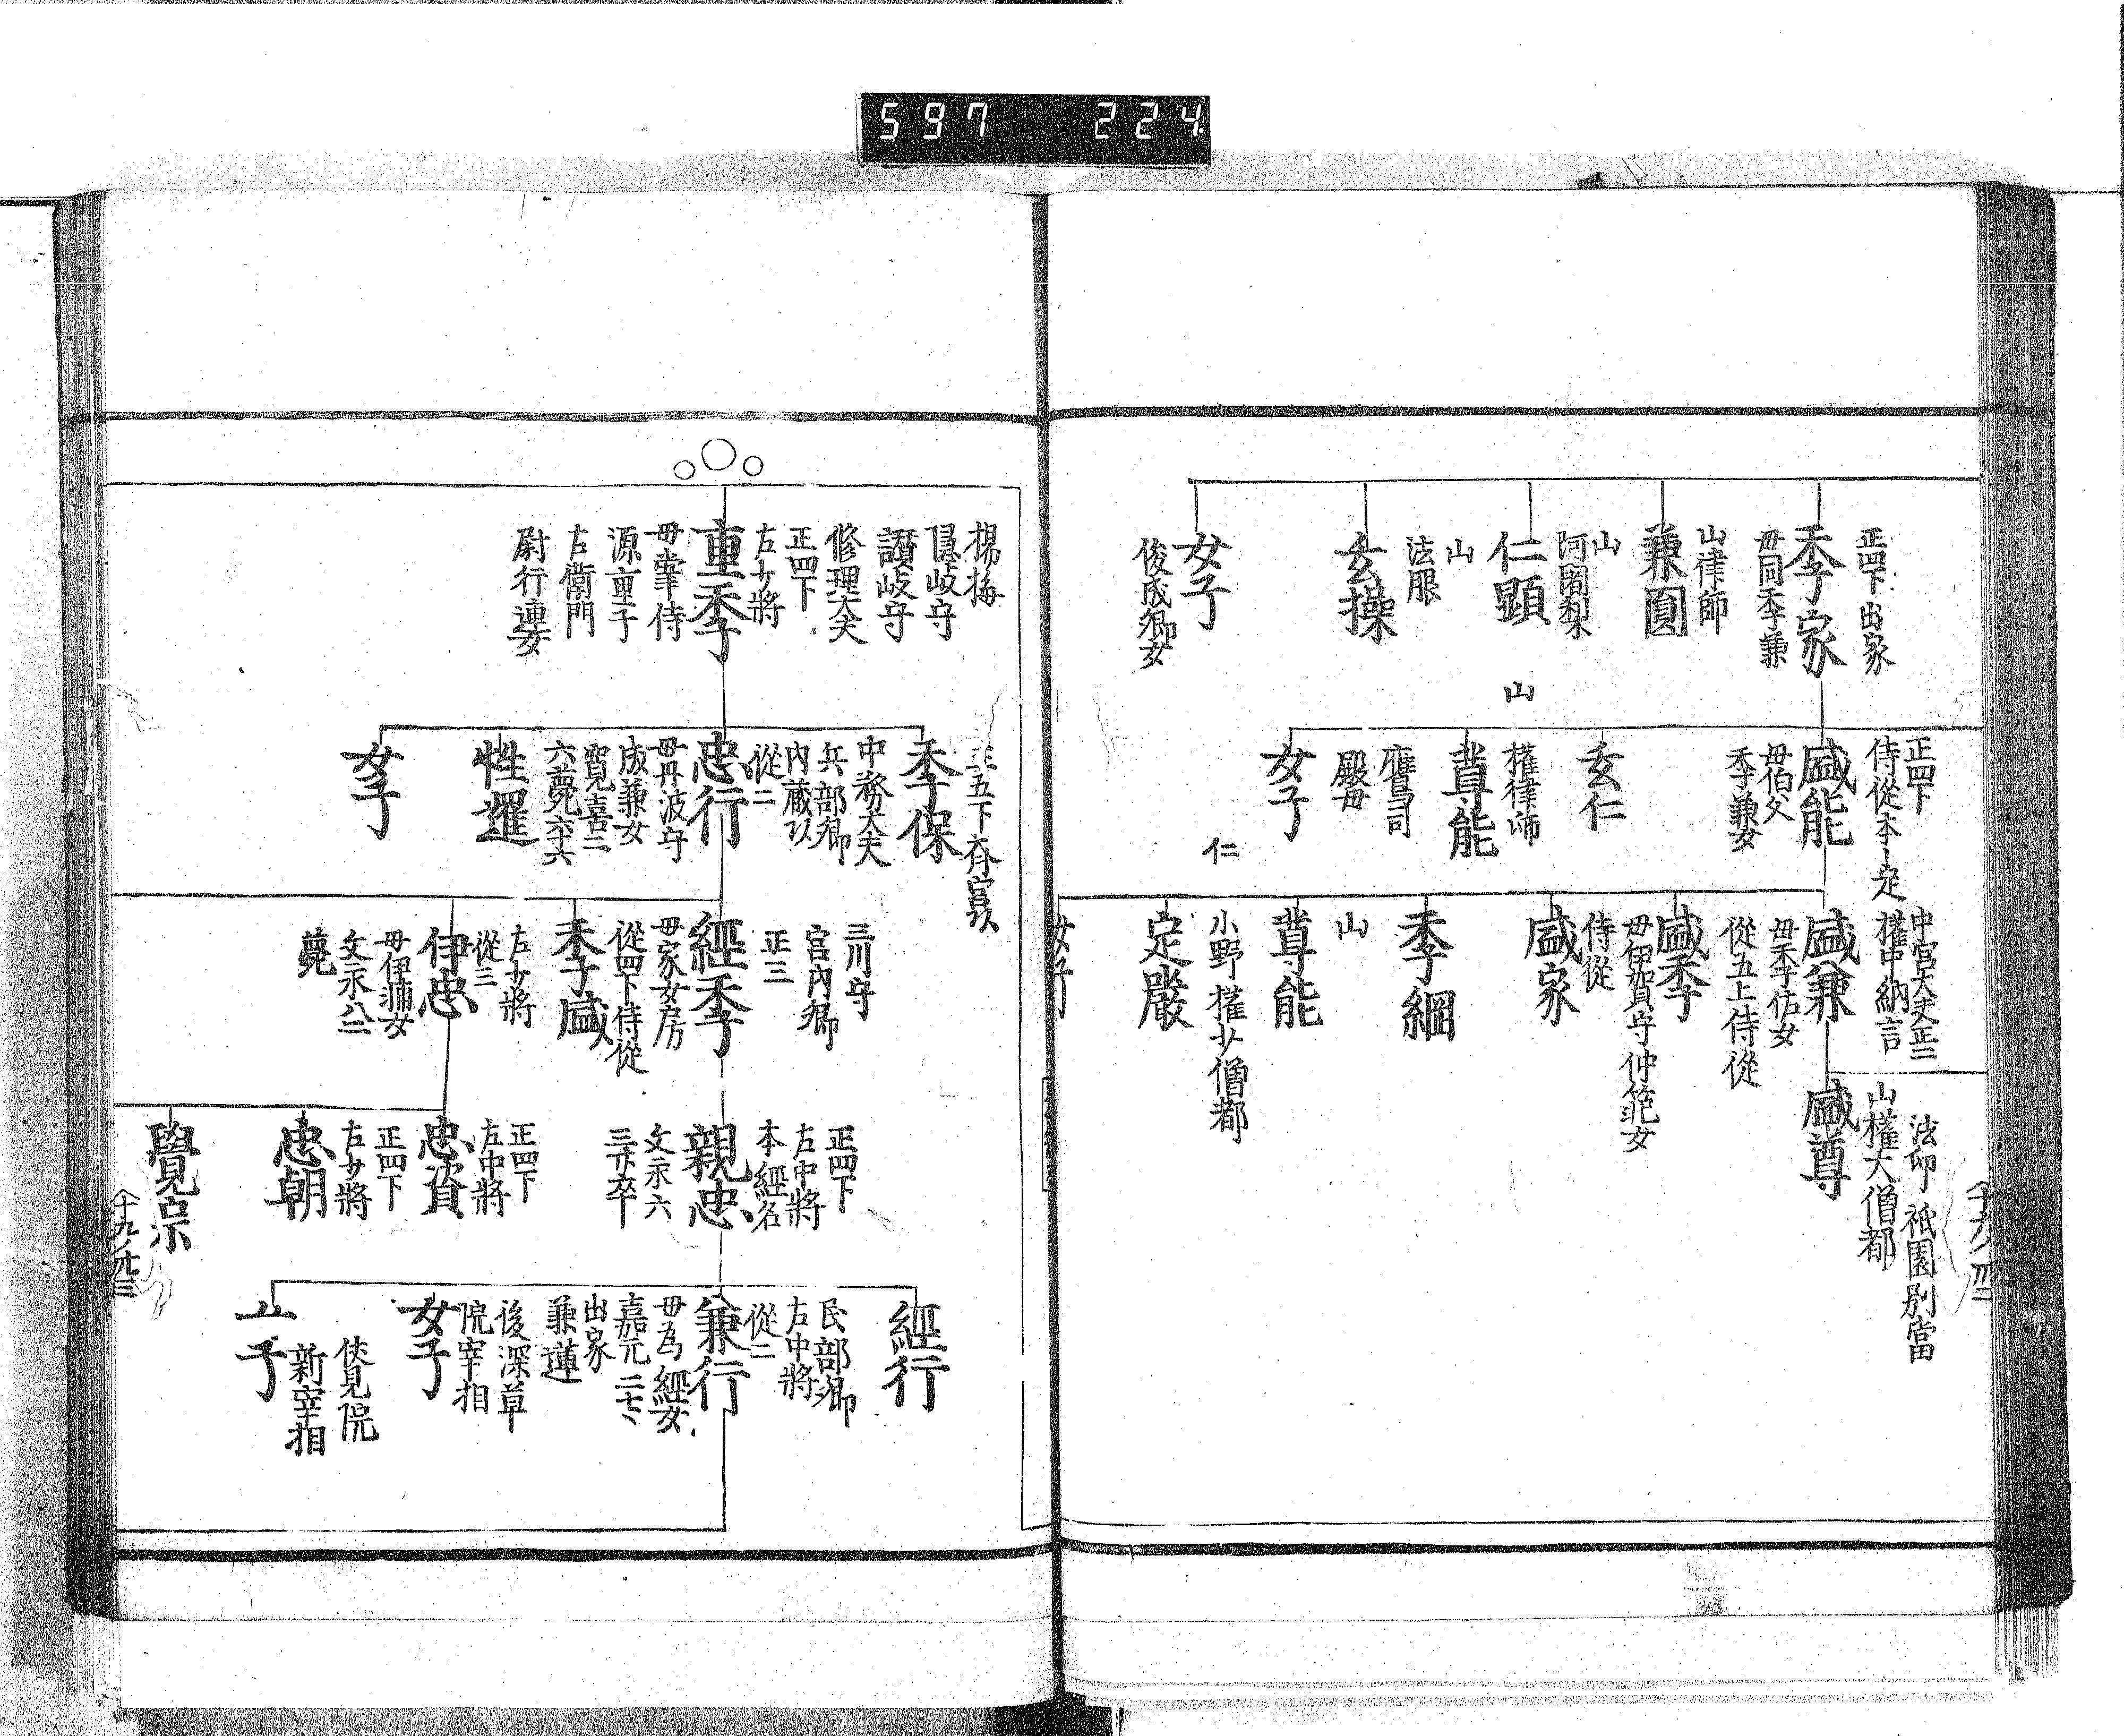 597 224
正四下出家
季家
母同季兼
山律師
兼圓
山
阿闍梨
仁顕
山
法眼
玄操
女子
俊成卿女
正四下
侍從本ー定
盛能
母伯父
季兼女
玄仁
山
権律師
尊能
鷹司
殿母
女子
中宮大夫正二
権中納言
盛兼
母季佑女
從五上侍從
盛季
母伊賀守仲範女
侍從
盛家
季綱
山
尊能
仁
小野権少僧都
定嚴
女子
法印祇園別當
山権大僧都
盛尊
楊梅
隠岐守
讃岐守
修理大夫
正四下
左少將
重季
母掌侍
源重子
右衛門
尉行連女
正五下斉宮以
季保
中務大夫
兵部卿
内蔵以
從二
忠行
母丹波守
成兼女
寛喜二
六薨六十六
性暹
女子
三川守
宮内卿
正三
經季
母家女房
從四下侍從
季盛
左少將
從三
伊忠
母伊輔女
文永八二
薨
正四下
左中將
本經名
親忠
文永六
三廿六卒
正四下
左中將
忠資
正四下
右少將
忠朝
覺宗
經行
民部卿
左中將
從二
兼行
母為經女
嘉元二七、
出家
兼蓮
後深草
院宰相
女子
伏見院
新宰相
女子